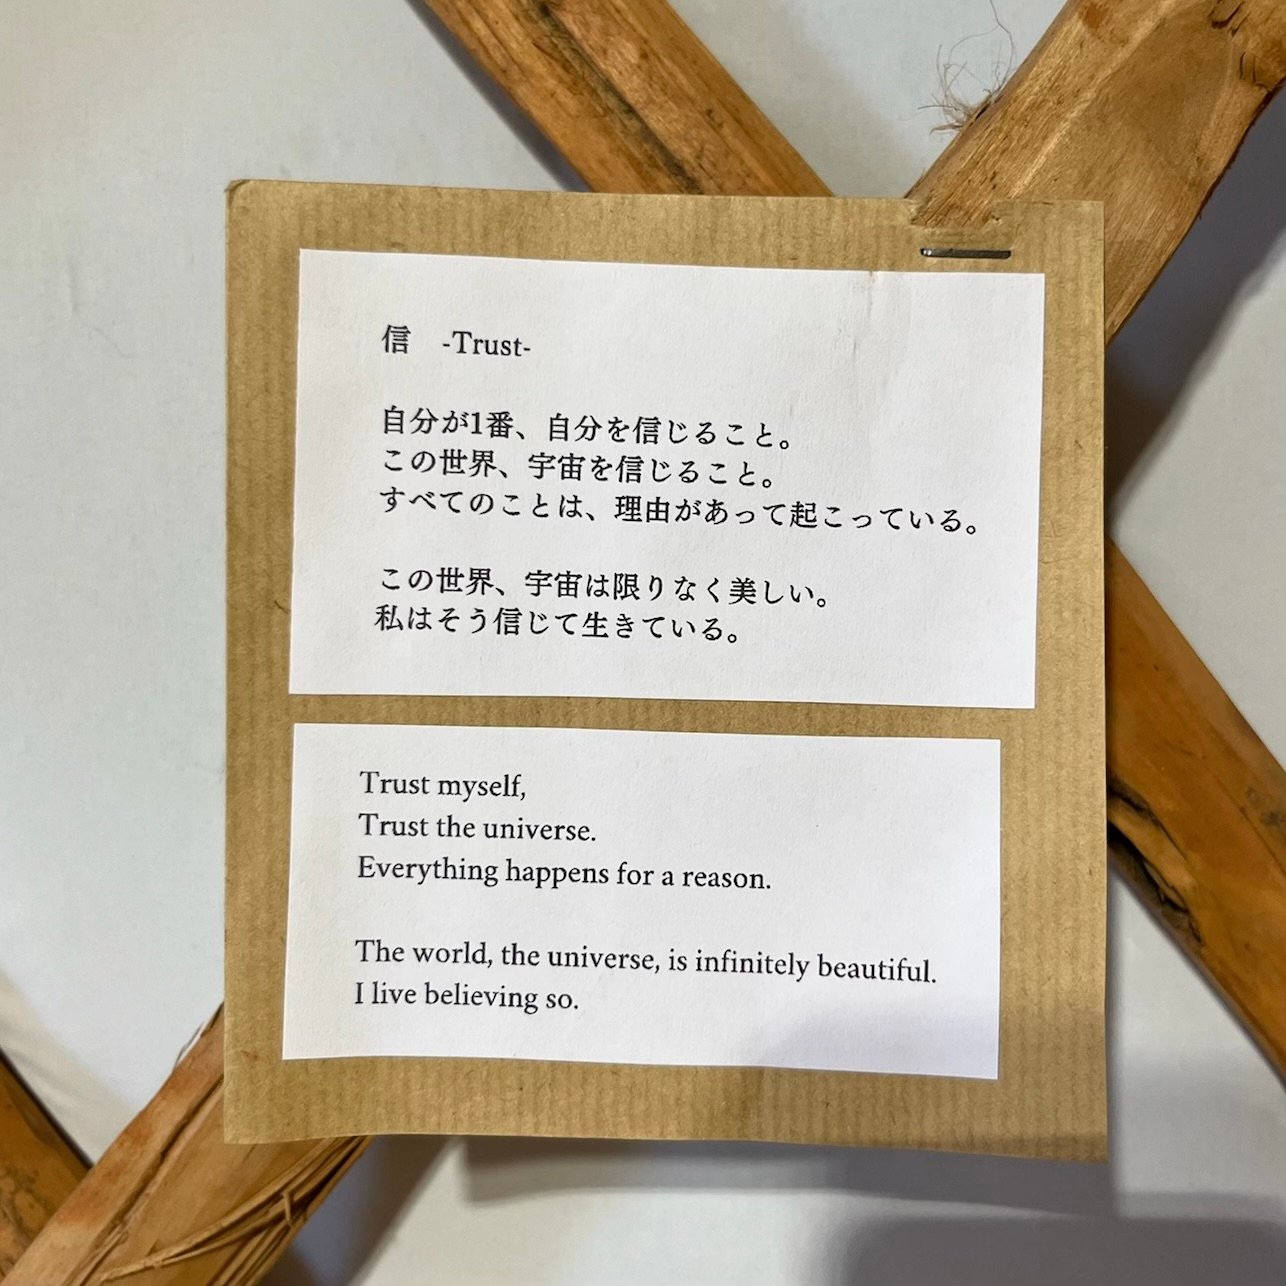 信　-Trust-
自分が1番、自分を信じること。
この世界、宇宙を信じること。
すべてのことは、理由があって起こっている。
この世界、宇宙は限りなく美しい。
私はそう信じて生きている。
Trust myself,
Trust the universe.
Everything happens for a reason.
The world, the universe, is infinitely beautiful.
I live believing so.